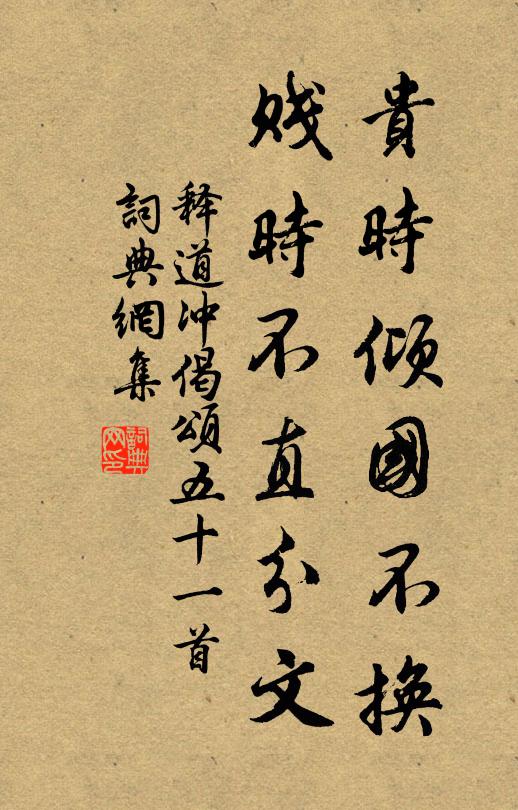 貴時傾國不換
賤時不直分文
释道冲偈頌五十一首
詞典網集
詞典網印